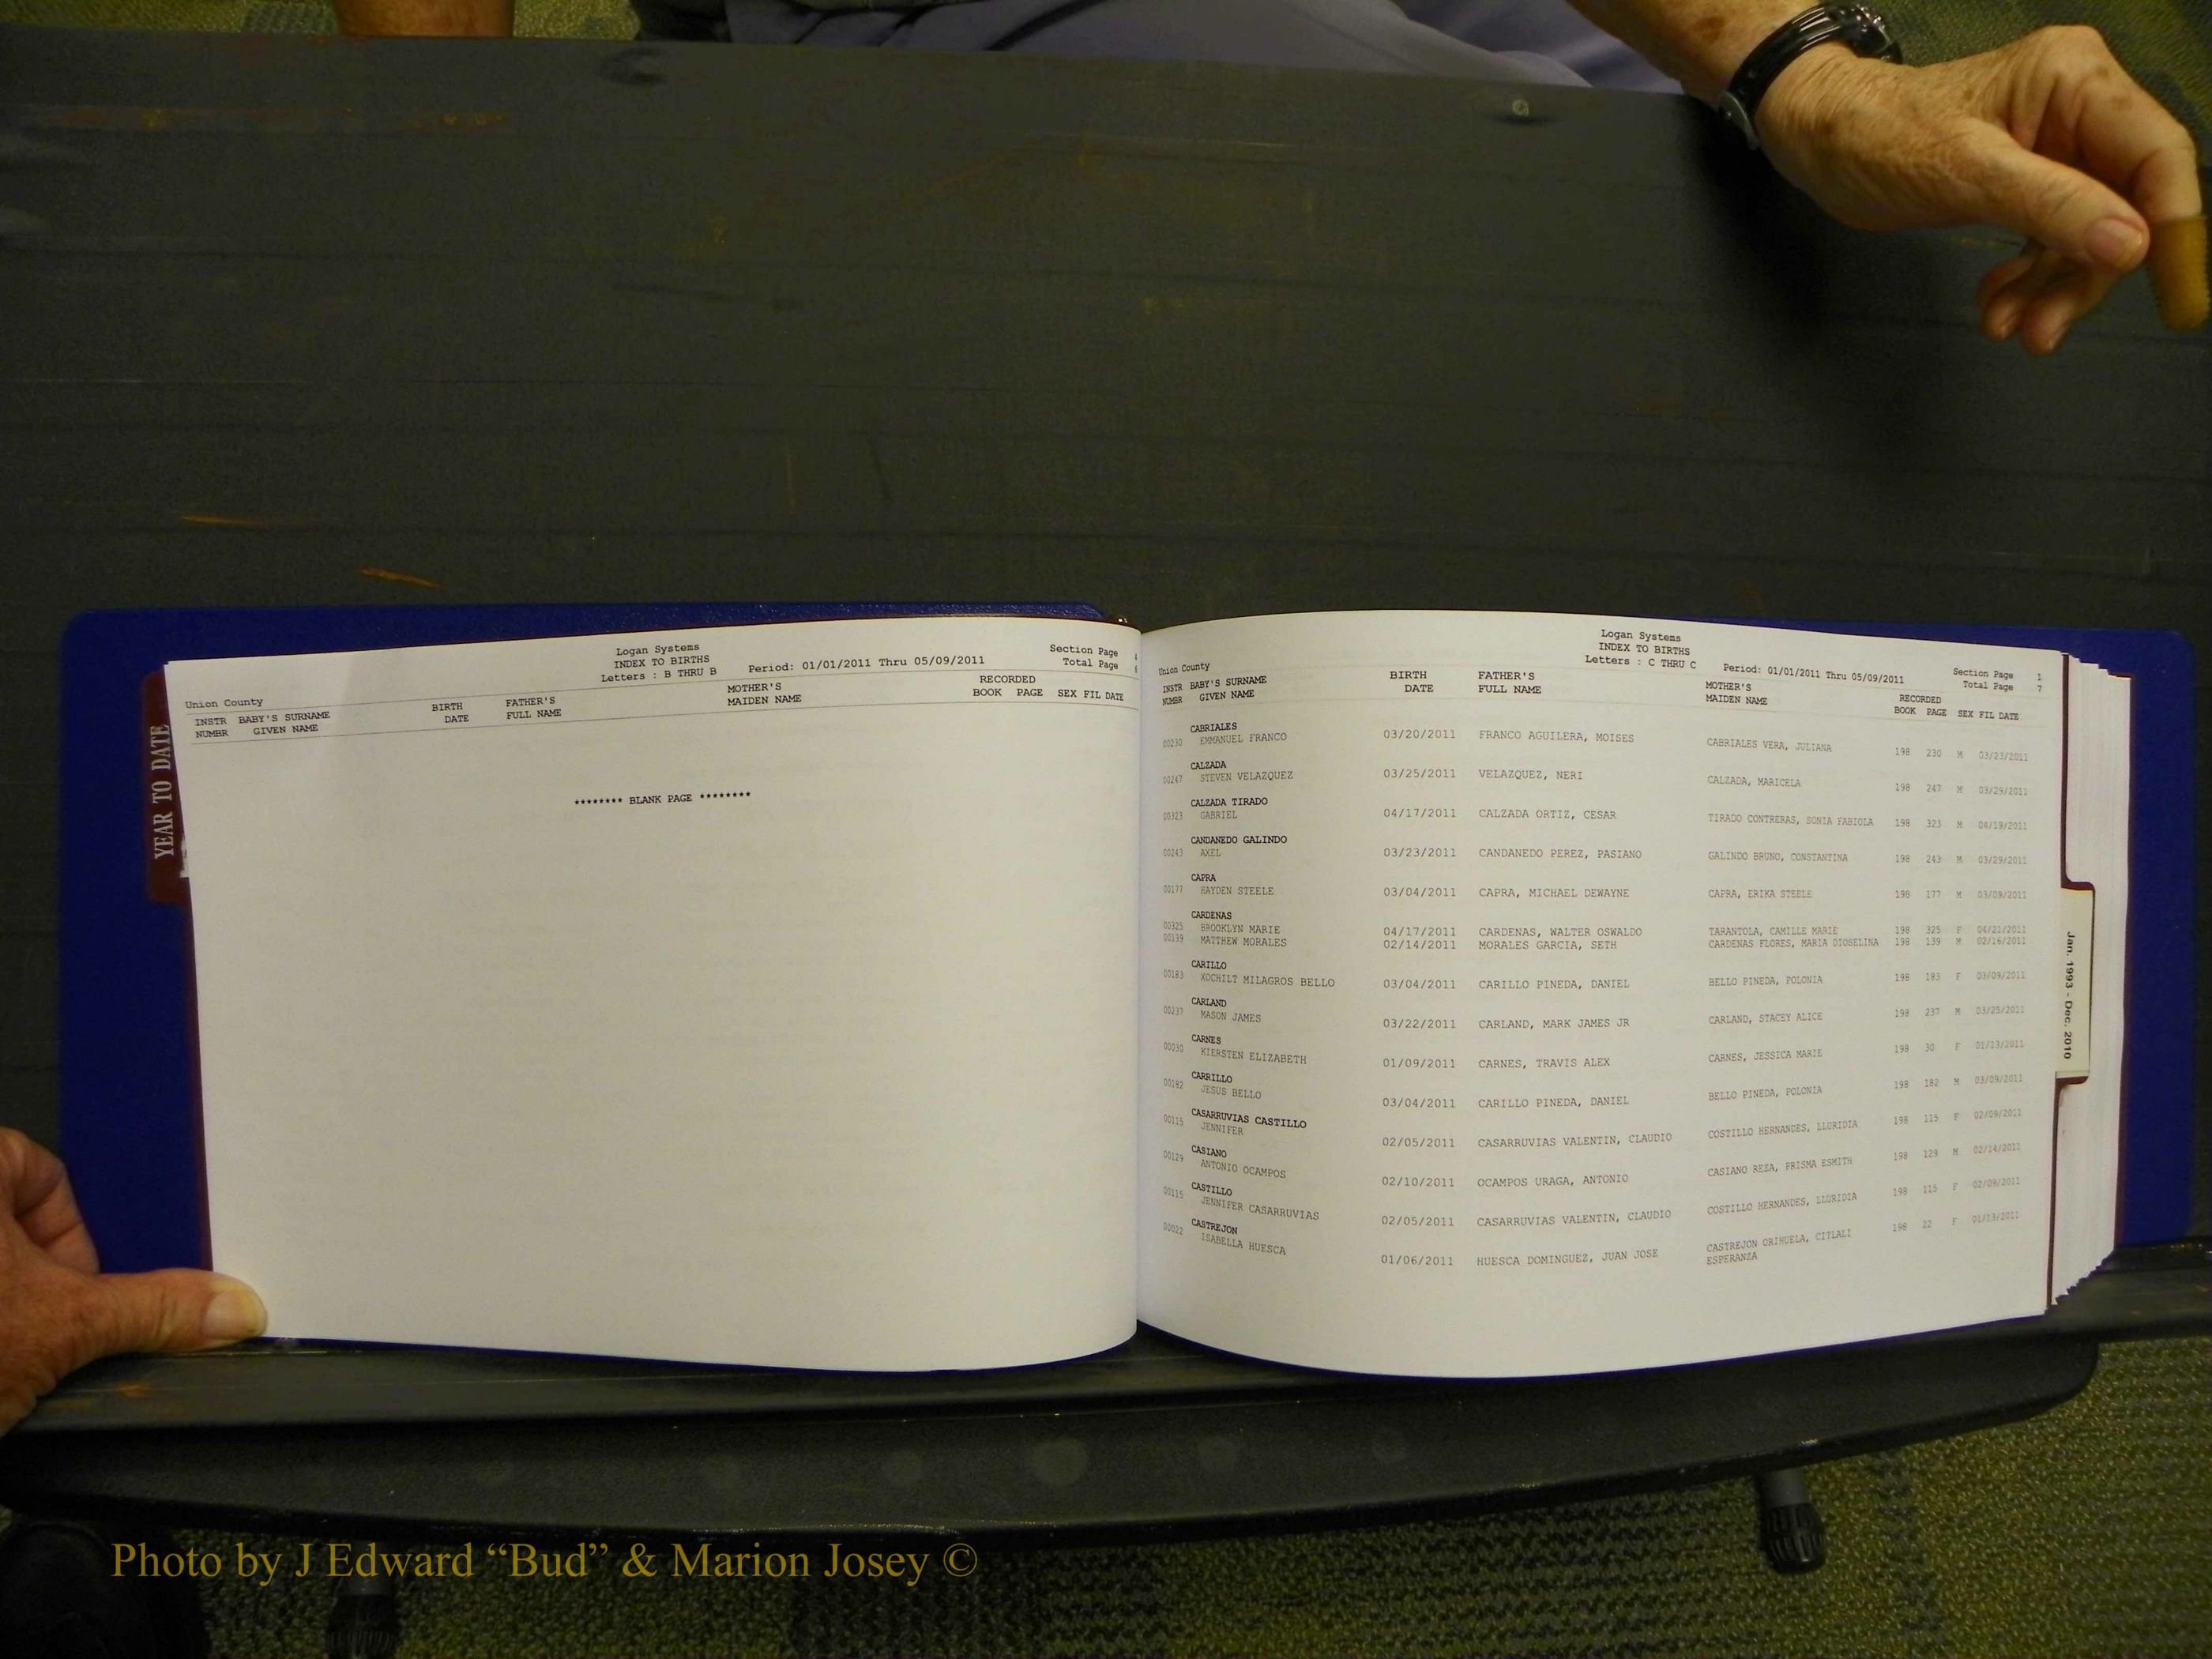 YEAR TO DATE
Logan Systems
INDEX TO BIRTHS
Letters : B THRU B Period: 01/01/2011 Thru 05/09/2011
Section Page
Total Page
Union County
INSTR BABY'S SURNAME BIRTH FATHER'S MOTHER'S RECORDED
NUMBR GIVEN NAME DATE FULL NAME MAIDEN NAME BOOK PAGE SEX FIL DATE
******** BLANK PAGE ********
Logan Systems
INDEX TO BIRTHS
Letters : C THRU C Period: 01/01/2011 Thru 05/09/2011
Section Page 1
Total Page 7
Union County
INSTR BABY'S SURNAME BIRTH FATHER'S MOTHER'S RECORDED
NUMBR GIVEN NAME DATE FULL NAME MAIDEN NAME BOOK PAGE SEX FIL DATE
CABRIALES
00230 EMMANUEL FRANCO 03/20/2011 FRANCO AGUILERA, MOISES CABRIALES VERA, JULIANA 198 230 M 03/23/2011
CALZADA
00247 STEVEN VELAZQUEZ 03/25/2011 VELAZQUEZ, NERI CALZADA, MARICELA 198 247 M 03/29/2011
CALZADA TIRADO
00323 GABRIEL 04/17/2011 CALZADA ORTIZ, CESAR TIRADO CONTRERAS, SONIA FABIOLA 198 323 M 04/19/2011
CANDANEDO GALINDO
00243 AXEL 03/23/2011 CANDANEDO PEREZ, PASIANO GALINDO BRUNO, CONSTANTINA 198 243 M 03/29/2011
CAPRA
00177 HAYDEN STEELE 03/04/2011 CAPRA, MICHAEL DEWAYNE CAPRA, ERIKA STEELE 198 177 M 03/09/2011
CARDENAS
00325 BROOKLYN MARIE 04/17/2011 CARDENAS, WALTER OSWALDO TARANTOLA, CAMILLE MARIE 198 325 F 04/21/2011
00139 MATTHEW MORALES 02/14/2011 MORALES GARCIA, SETH CARDENAS FLORES, MARIA DIOSELINA 198 139 M 02/16/2011
CARILLO
00183 XOCHILT MILAGROS BELLO 03/04/2011 CARILLO PINEDA, DANIEL BELLO PINEDA, POLONIA 198 183 F 03/09/2011
CARLAND
00237 MASON JAMES 03/22/2011 CARLAND, MARK JAMES JR CARLAND, STACEY ALICE 198 237 M 03/25/2011
CARNES
00030 KIERSTEN ELIZABETH 01/09/2011 CARNES, TRAVIS ALEX CARNES, JESSICA MARIE 198 30 F 01/13/2011
CARRILLO
00182 JESUS BELLO 03/04/2011 CARILLO PINEDA, DANIEL BELLO PINEDA, POLONIA 198 182 M 03/09/2011
CASARRUVIAS CASTILLO
00115 JENNIFER 02/05/2011 CASARRUVIAS VALENTIN, CLAUDIO COSTILLO HERNANDES, LLURIDIA 198 115 F 02/09/2011
CASIANO
00129 ANTONIO OCAMPOS 02/10/2011 OCAMPOS URAGA, ANTONIO CASIANO REZA, PRISMA ESMITH 198 129 M 02/14/2011
CASTILLO
00115 JENNIFER CASARRUVIAS 02/05/2011 CASARRUVIAS VALENTIN, CLAUDIO COSTILLO HERNANDES, LLURIDIA 198 115 F 02/09/2011
CASTREJON
00022 ISABELLA HUESCA 01/06/2011 HUESCA DOMINGUEZ, JUAN JOSE CASTREJON ORIHUELA, CITLALI 198 22 F 01/13/2011
ESPERANZA
Jan. 1993 - Dec. 2010
Photo by J Edward “Bud” & Marion Josey ©